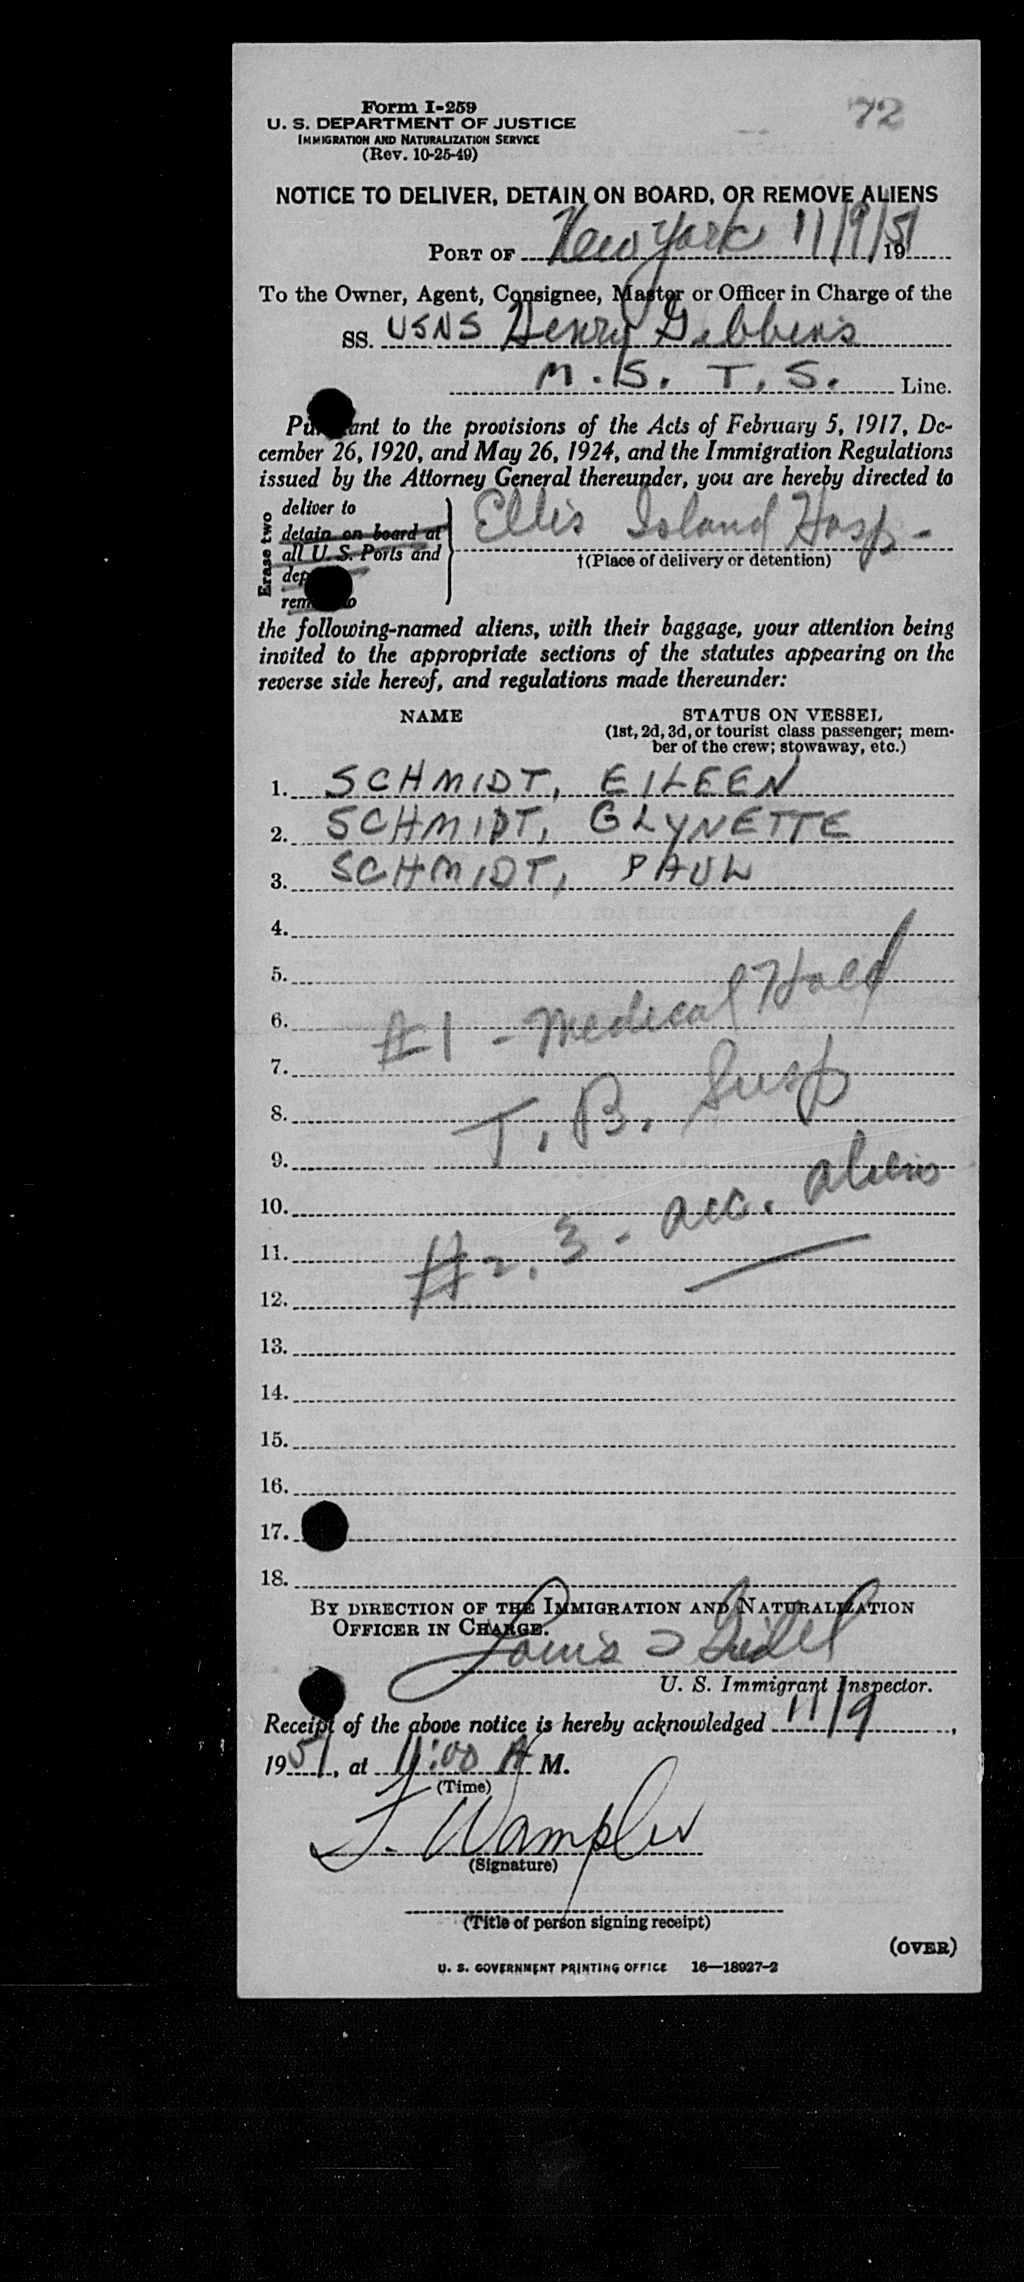 Form I-259
72
U. S. DEPARTMENT OF JUSTICE
IMMIGRATION AND NATURALIZATION SERVICE
(Rev. 10-25-49)
NOTICE TO DELIVER, DETAIN ON BOARD, OR REMOVE ALIENS
PORT OF New York 11/9/51 19
To the Owner, Agent, Consignee, Master or Officer in Charge of the
SS. USNS Henry Gibbins
M. S. T. S. Line.
Pursuant to the provisions of the Acts of February 5, 1917, De-
cember 26, 1920, and May 26, 1924, and the Immigration Regulations
issued by the Attorney General thereunder, you are hereby directed to
Erase two
deliver to
detain on board at
all U. S. Ports and
dep
rem o
Ellis Island Hosp -
†(Place of delivery or detention)
the following-named aliens, with their baggage, your attention being
invited to the appropriate sections of the statutes appearing on the
reverse side hereof, and regulations made thereunder:
NAME STATUS ON VESSEL
(1st, 2d, 3d, or tourist class passenger; mem-
ber of the crew; stowaway, etc.)
1. SCHMIDT, EILEEN
2. SCHMIDT, GLYNETTE
3. SCHMIDT, PAUL
4.
5.
6. #1 - Medical Hold
7.
8. T. B. Susp
9.
10.
11. #2, 3 - acc. aliens
12.
13.
14.
15.
16.
17.
18.
BY DIRECTION OF THE IMMIGRATION AND NATURALIZATION
OFFICER IN CHARGE.
Louis
U. S. Immigrant Inspector.
Receipt of the above notice is hereby acknowledged 11/9,
1951, at 11:00 A M.
(Time)
F. Wampler
(Signature)
(Title of person signing receipt)
(OVER)
U. S. GOVERNMENT PRINTING OFFICE 16—18927-2